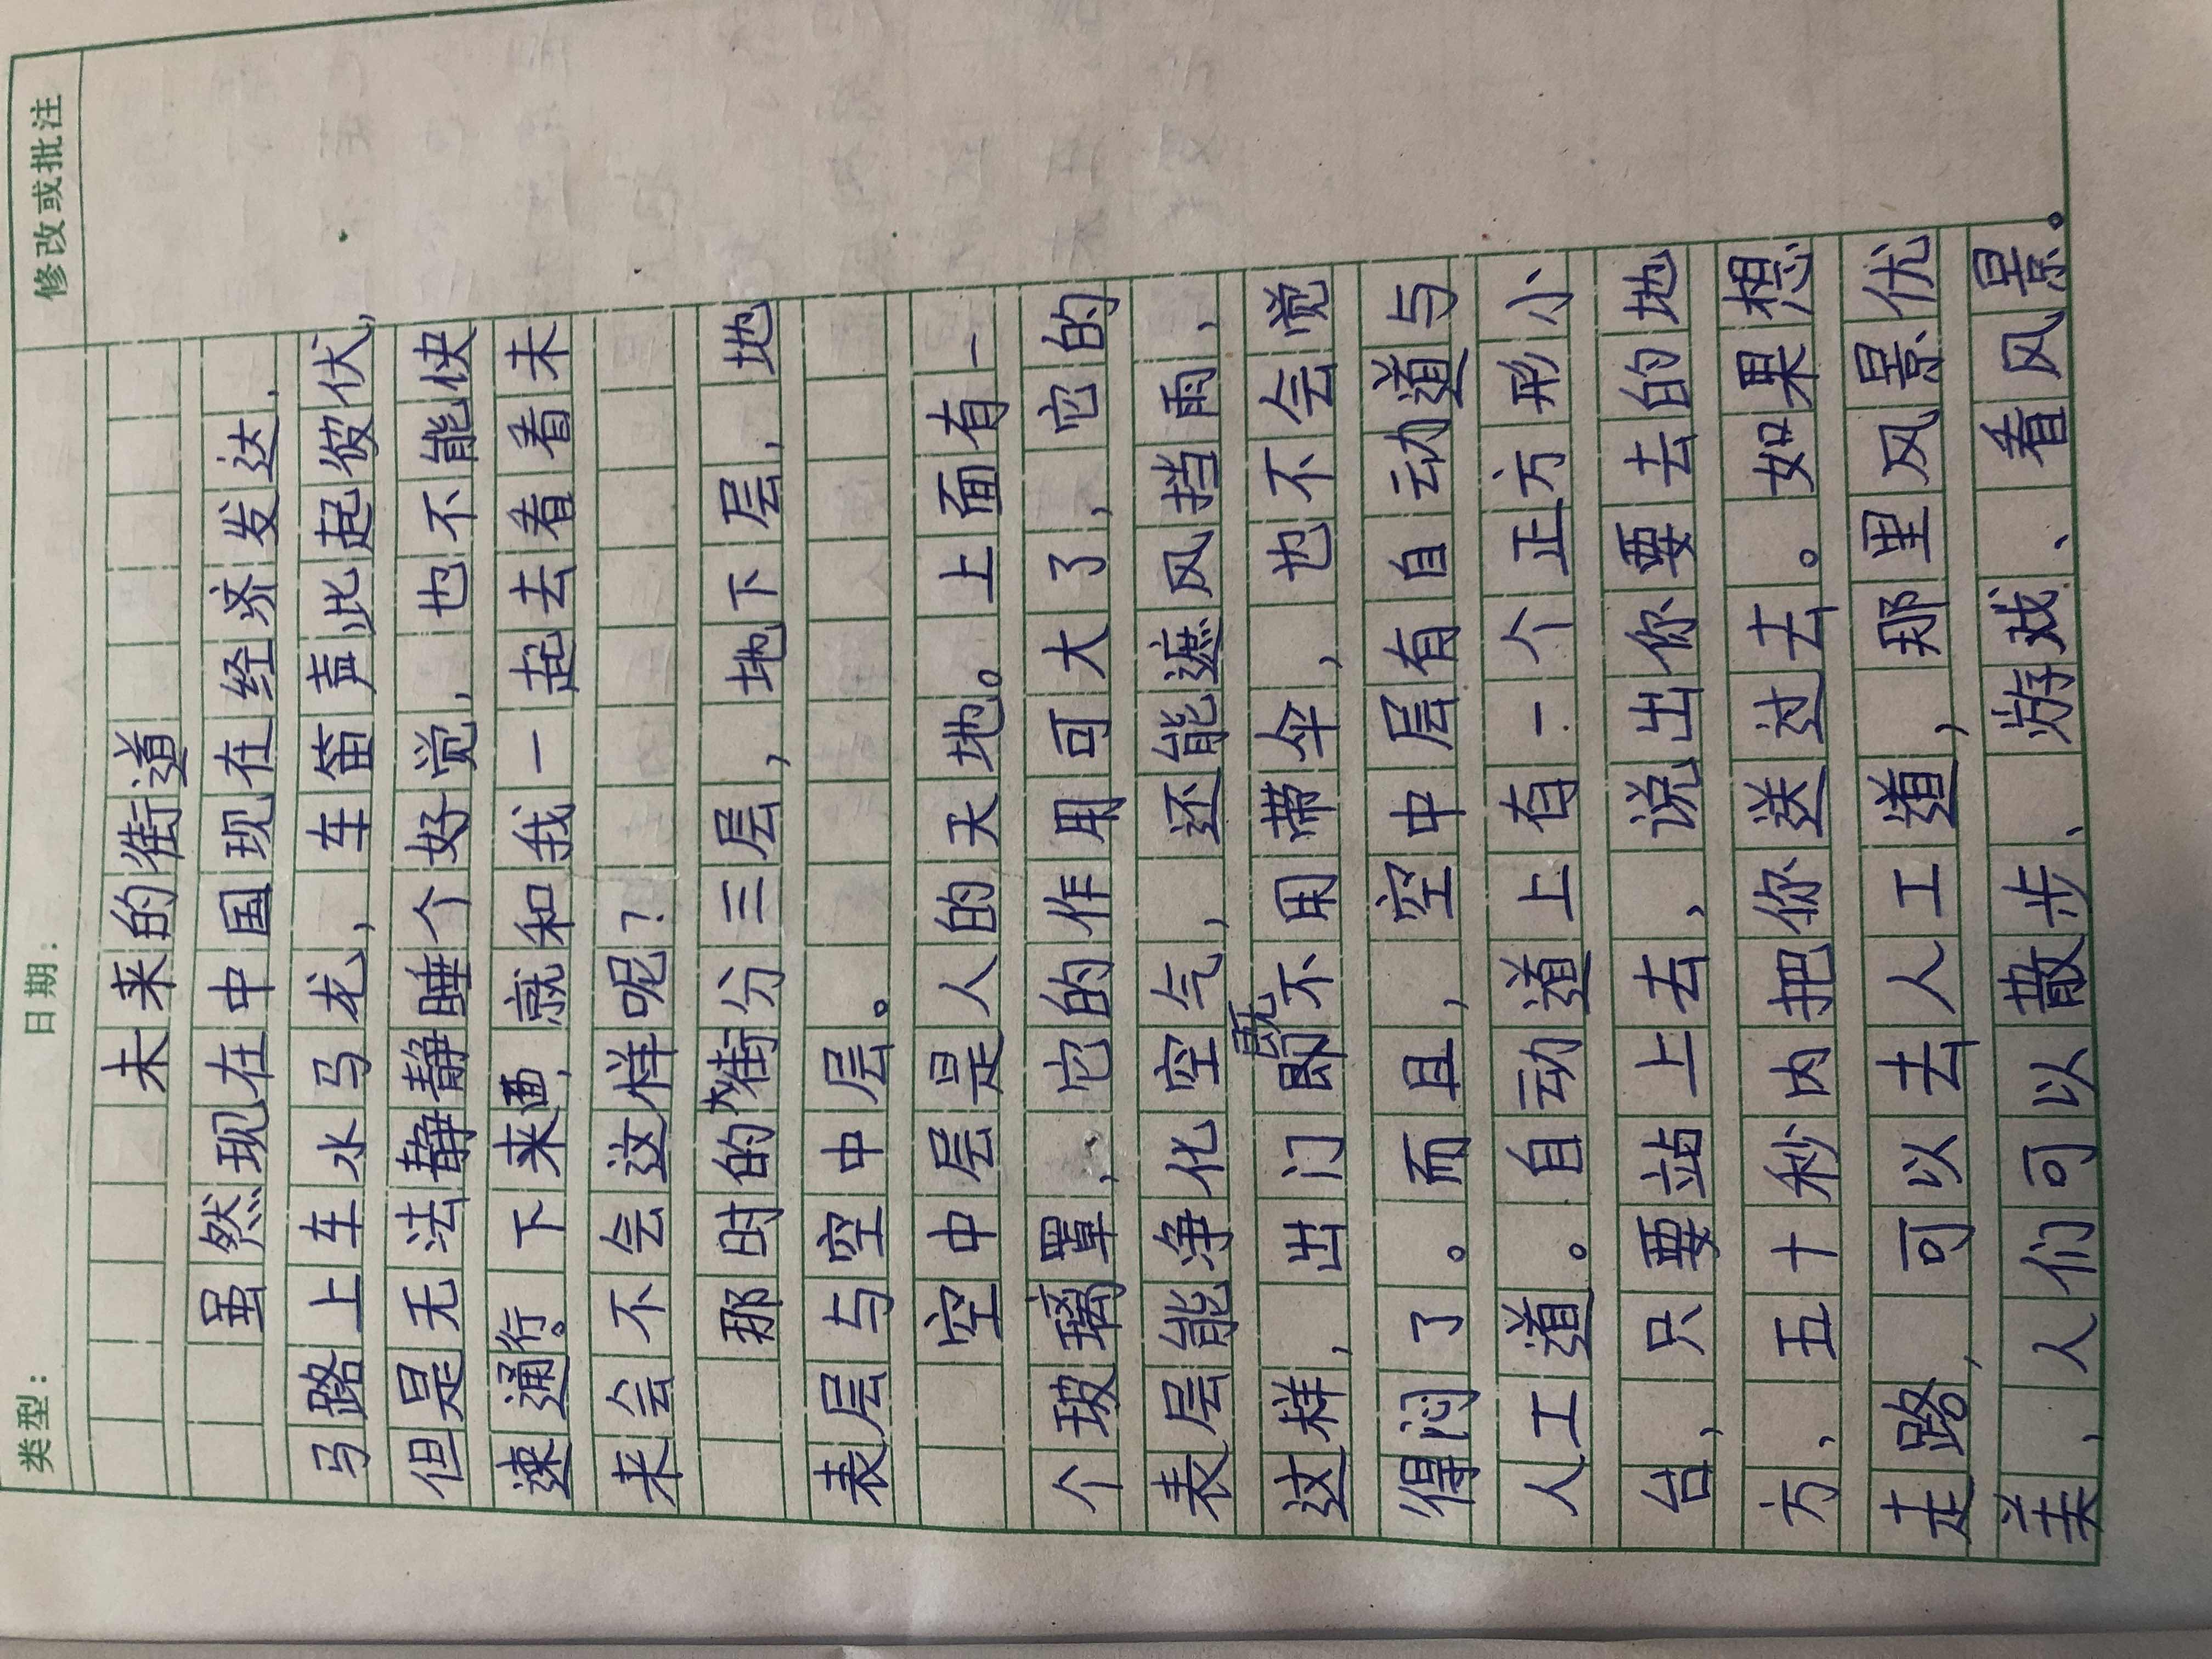 类型： 日期： 修改或批注
未来的街道
虽然现在中国现在经济发达，
马路上车水马龙，车笛声此起彼伏，
但是无法静静睡个好觉，也不能快
速通行。下来，就和我一起去看看未
来会不会这样呢？
那时的大街分三层，地下层，地
表层与空中层。
空中层是人的天地。上面有一
个玻璃罩，它的作用可大了，它的
表层能净化空气，还能遮风挡雨，
这样，出门既不用带伞，也不会觉
得闷了。而且，空中层有自动道与
人工道。自动道上有一个正方形小
台，只要站上去，说出你要去的地
方，五十秒内把你送过去。如果想
走路，可以去人工道，那里风景优
美，人们可以散步、游戏、看风景。